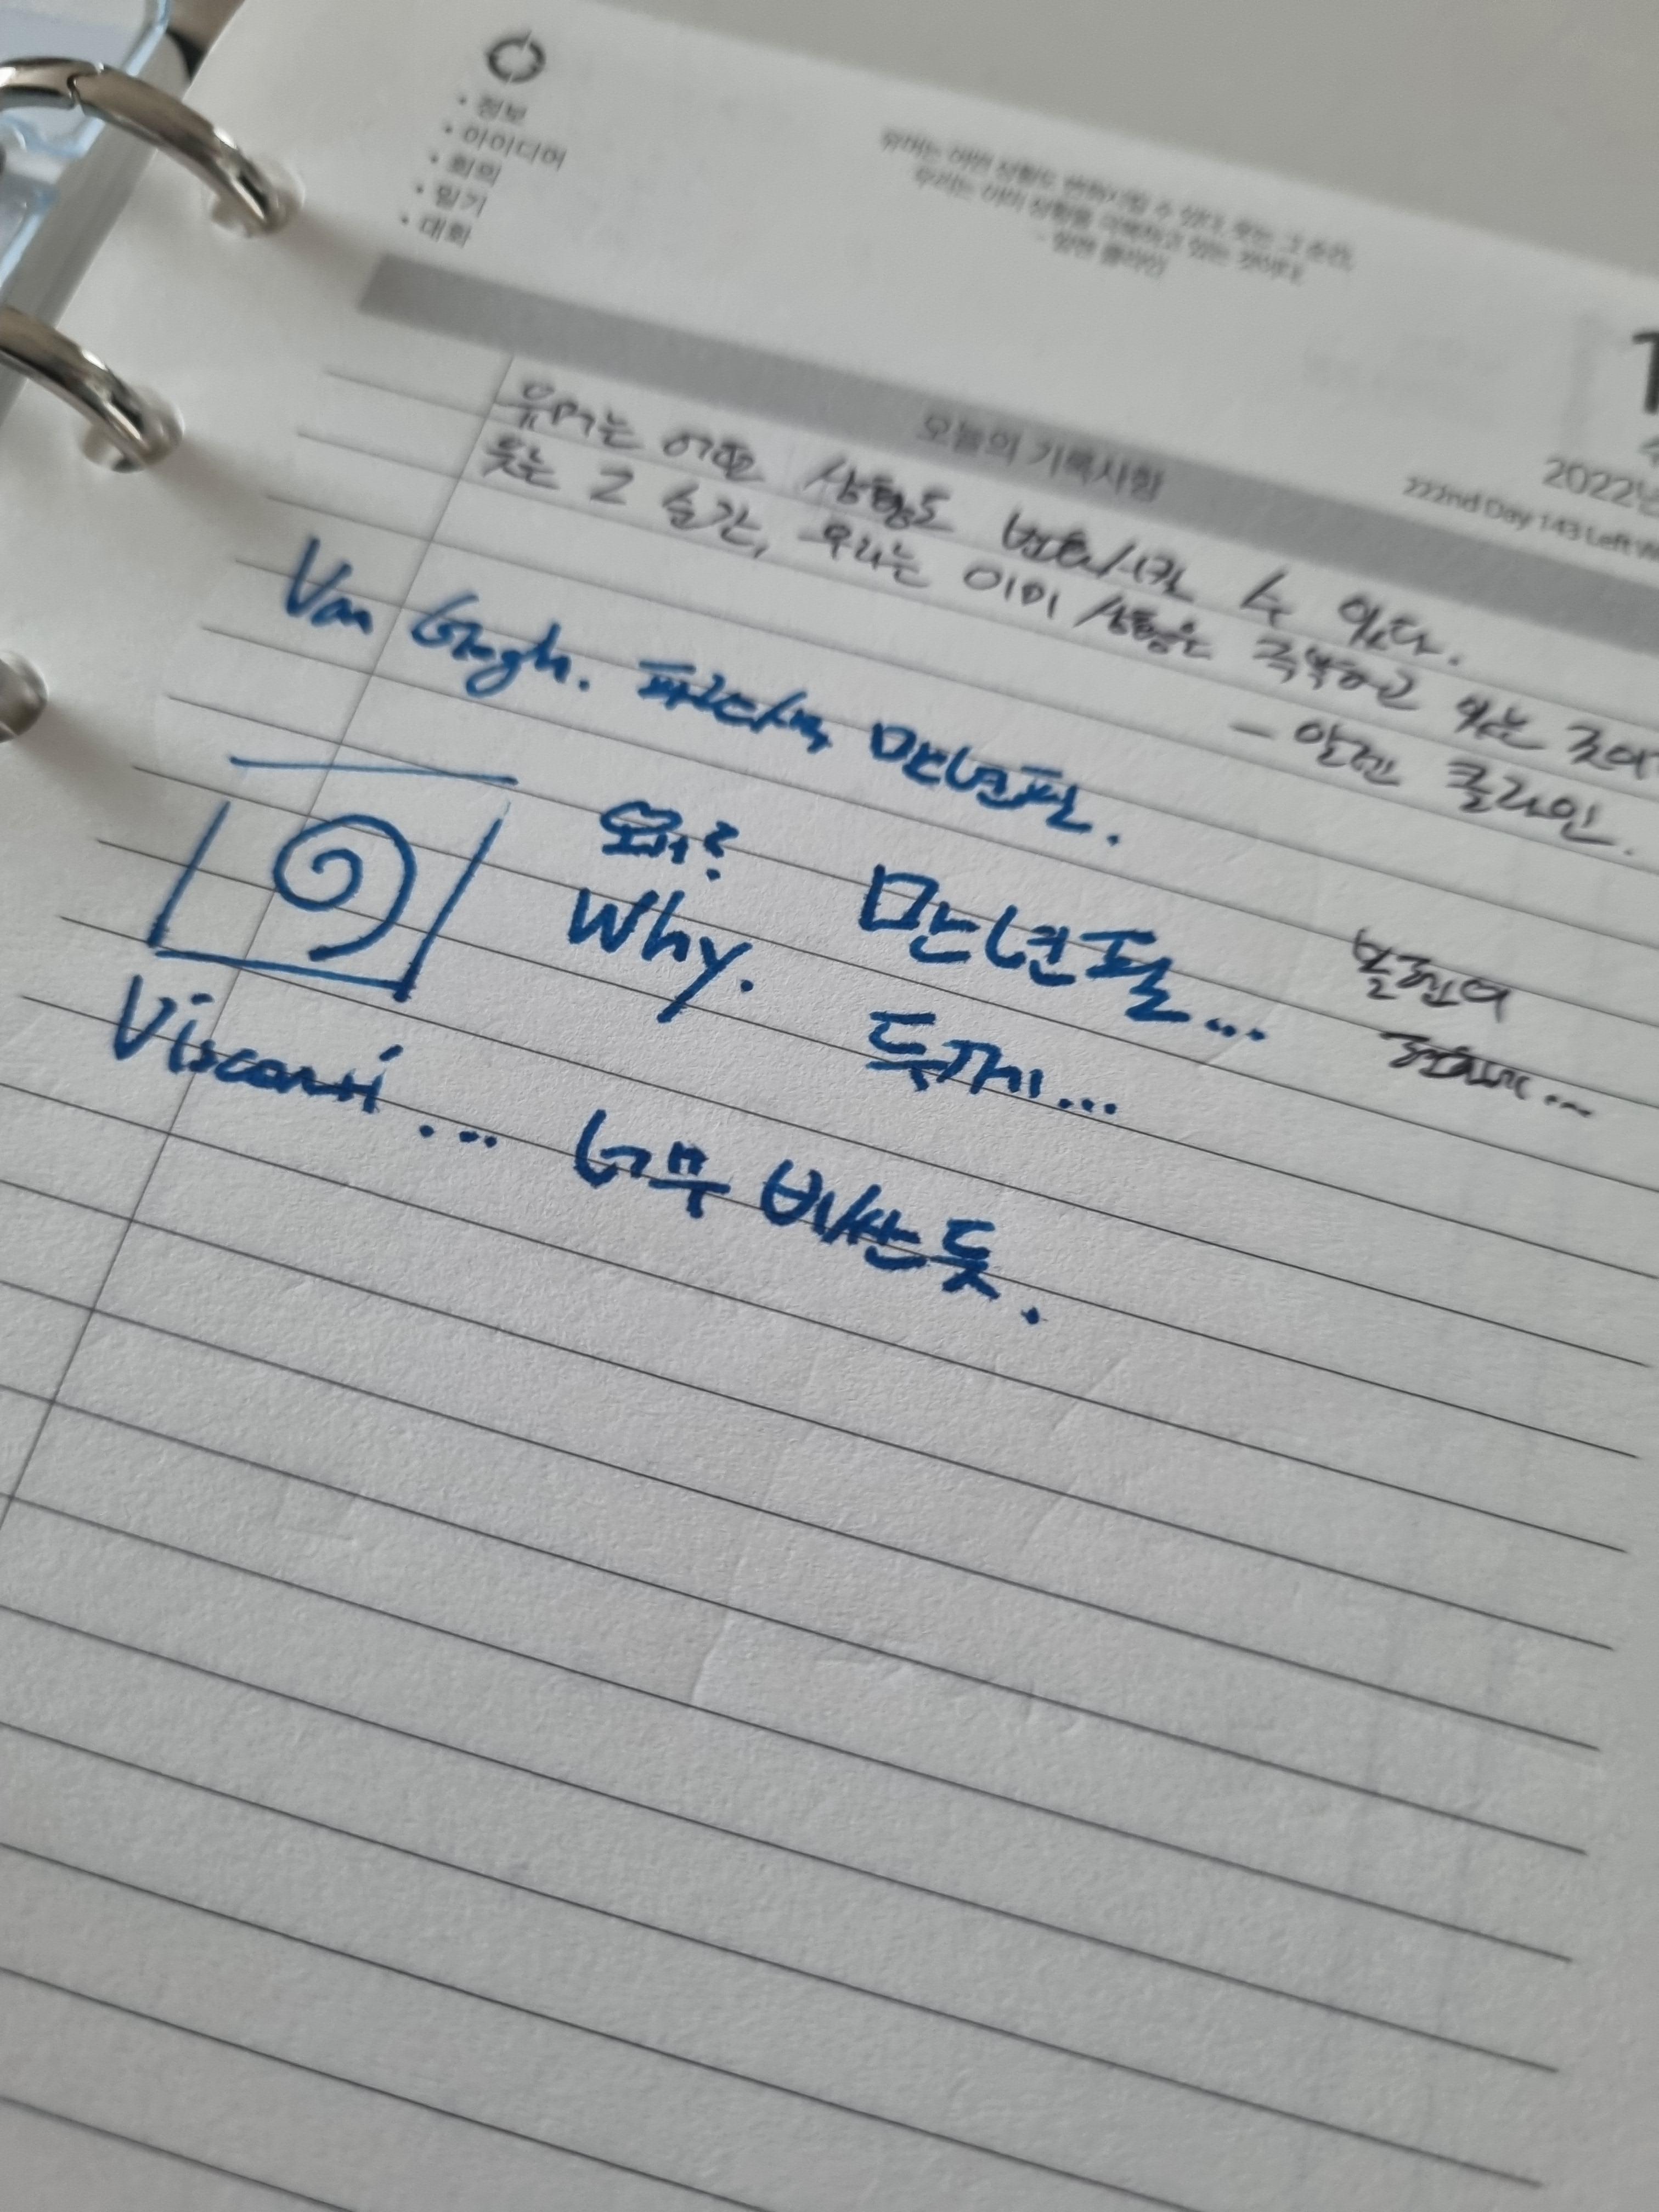 • 정보
• 아이디어
• 회의
• 일기
• 대화
유머는 어떤 상황도 변화시킬 수 있다. 웃는 그 순간,
우리는 이미 상황을 극복하고 있는 것이다
- 알렌 클라인
오늘의 기록사항
2022년
222nd Day 143 Left
유머는 어떤 상황도 변화시킬 수 있다.
웃는 그 순간, 우리는 이미 상황을 극복하고 있는 것이
- 알렌 클라인.
Van Gogh. 파란색 만년필.
왜?
Why.
만년필...
두께...
볼펜여
Visconti... 너무 비싼 듯.